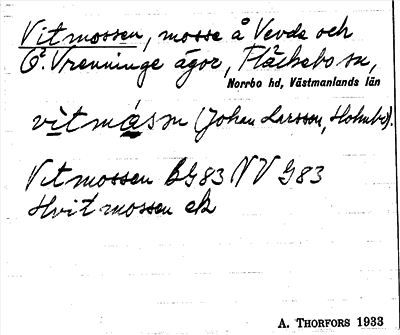 Vitmossen, mosse å Vevde och
Ö. Vrenninge ägor, Fläckebo sn,
Norrbo hd, Västmanlands län
vìtmásn (Johan Larsson, Holmbo).
Vitmossen bG83 NV G83
Hvitmossen ek
A. THORFORS 1933